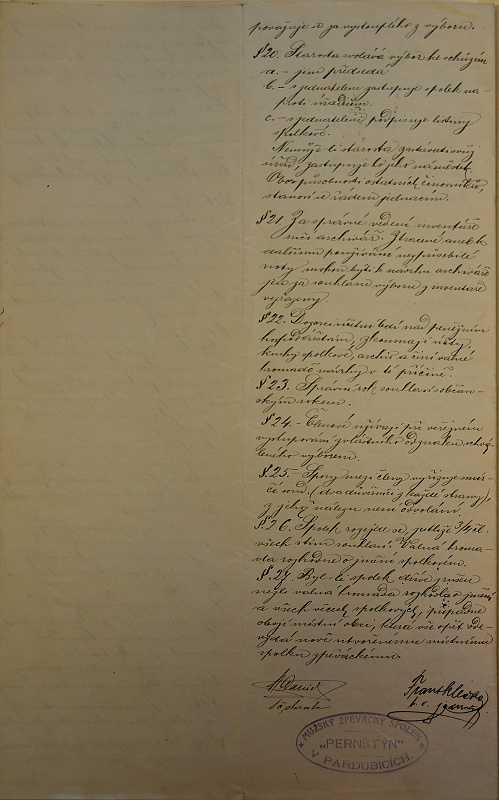 považuje se za vystouplého z výboru.
§ 20. Starosta svolává výbor ke schůzím
a. - jim předsedá
b. - s jednatelem zastupuje spolek na-
proti úřadům.
c. - s jednatelem podpisuje listiny
spolkové.
Nemůže-li starosta zastávati svůj
úřad, zastupuje ho jeho náměstek.
Obor působnosti ostatních činovníků,
stanoví se řádem jednacím.
§ 21. Za správné vedení inventáře
ručí archivář. Ztracené aneb k
dalšímu používání nezpůsobilé
noty mohou býti k návrhu archiváře
jen za souhlasu výboru z inventáře
vyřazeny.
§ 22. Dozorci účetní bdí nad peněžním
hospodářstvím, zkoumají účty,
knihy spolkové, archiv a činí valné
hromadě návrhy v té příčině.
§ 23. Správní rok souhlasí s občan-
ským rokem.
§ 24. - Členové užívají při veřejném
vystupování zvláštního odznaku schvá-
leného výborem.
§. 25. - Spory mezi členy vyřizuje smír-
čí soud, (dva důvěrníci z každé strany),
z jehož nálezu není odvolání.
§. 26. Spolek rozejde se, jestliže 3/4 čl.
všech s tím souhlasí. Valná hroma-
da rozhodne o jmění spolkovém.
§. 27. Byl-li spolek dříve zrušen
nežli valná hromada rozhodla o jmění
a všech věcech spolkových, připadne
obojí místní obci, která vše opět ode-
vzdá nově utvořenému místnímu
spolku zpěváckému.
MUŽSKÝ ZPĚVÁCKÝ SPOLEK
„PERNŠTÝN"
V PARDUBICÍCH.